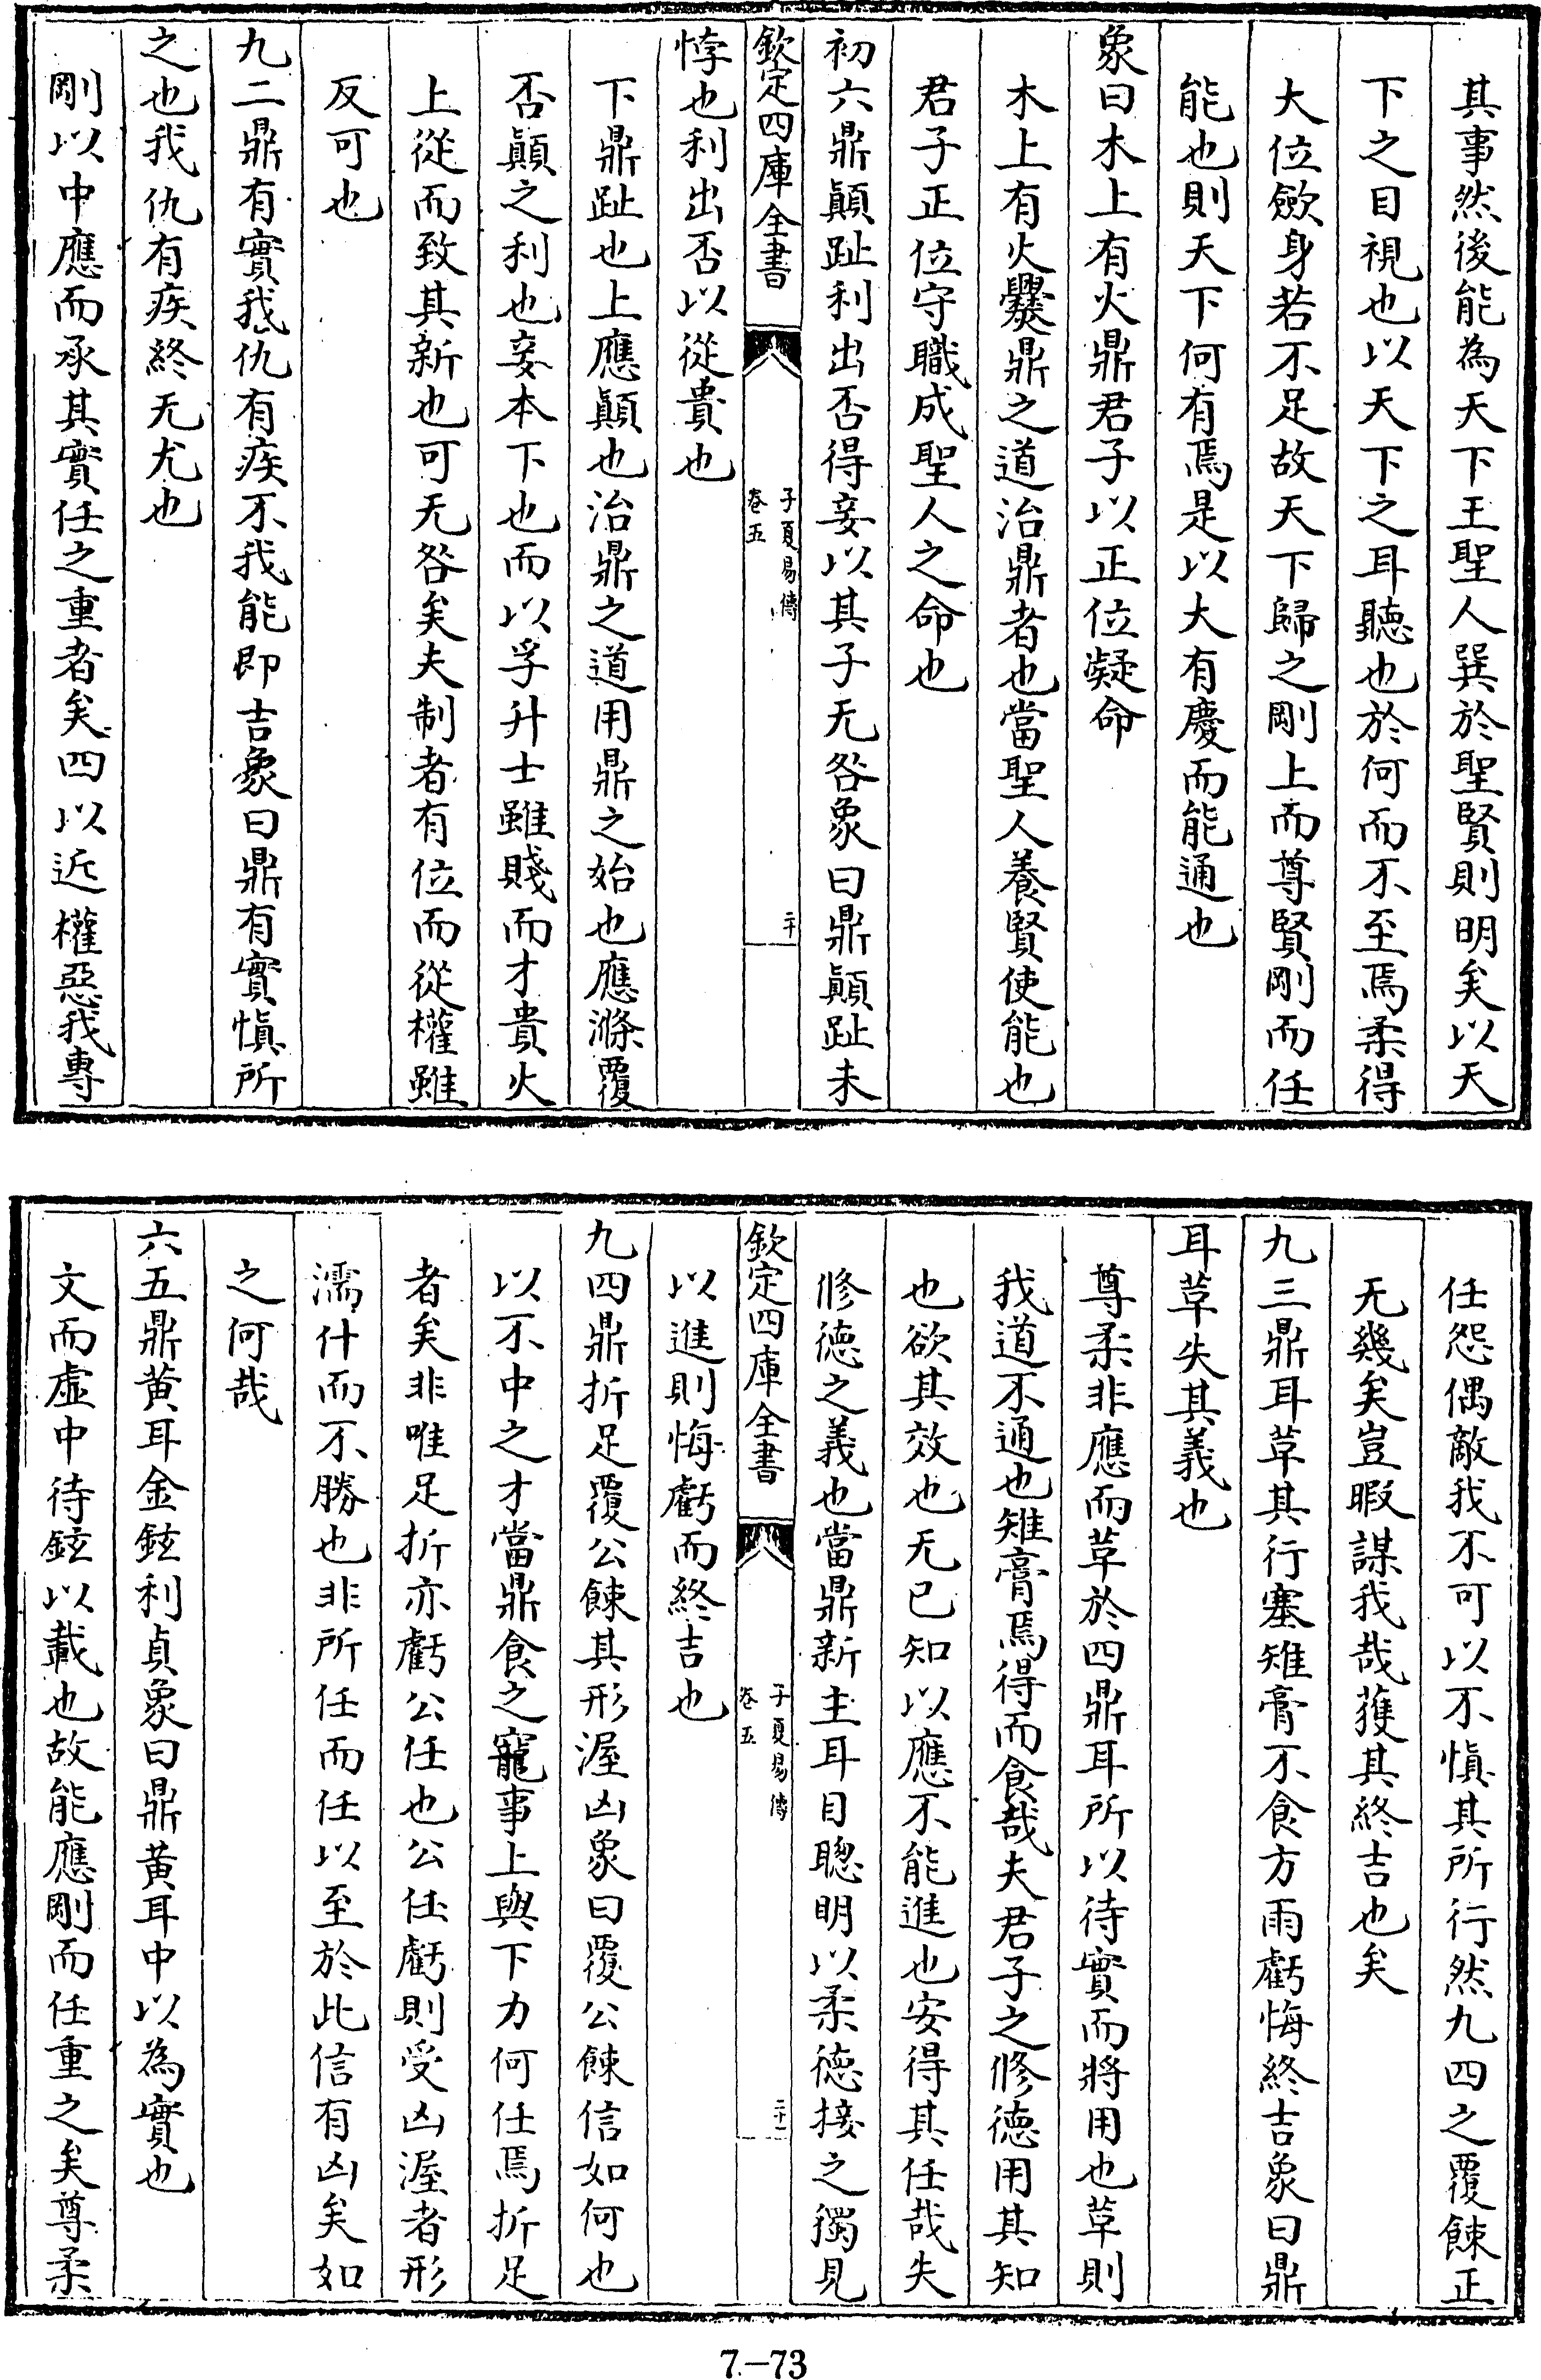 其事然後能為天下王聖人巽於聖賢則明矣以天
下之目視也以天下之耳聽也於何而不至焉柔得
大位歛身若不足故天下歸之剛上而尊賢剛而任
能也則天下何有焉是以大有慶而能通也
象曰木上有火鼎君子以正位凝命
木上有火爨鼎之道治鼎者也當聖人養賢使能也
君子正位守職成聖人之命也
初六鼎顚趾利出否得妾以其子无咎象曰鼎顚趾未
欽定四庫全書
子夏易傳
卷五
二十
悖也利出否以從貴也
下鼎趾也上應顚也治鼎之道用鼎之始也應滌覆
否顚之利也妾本下也而以孚升士雖賤而才貴火
上從而致其新也可无咎矣夫制者有位而從權雖
反可也
九二鼎有實我仇有疾不我能即吉象曰鼎有實慎所
之也我仇有疾終无尤也
剛以中應而承其實任之重者矣四以近權惡我專
任怨偶敵我不可以不慎其所行然九四之覆餗正
无幾矣豈暇謀我哉獲其終吉也矣
九三鼎耳草其行塞雉膏不食方雨虧悔終吉象曰鼎
耳草失其義也
尊柔非應而草於四鼎耳所以待實而將用也草則
我道不通也雉膏焉得而食哉夫君子之修徳用其知
也欲其效也无已知以應不能進也安得其任哉失
修徳之義也當鼎新主耳目聰明以柔徳接之獨見
欽定四庫全書
子夏易傳
卷五
二十一
以進則悔虧而終吉也
九四鼎折足覆公餗其形渥凶象曰覆公餗信如何也
以不中之才當鼎食之寵事上與下力何任焉折足
者矣非唯足折亦虧公任也公任虧則受凶渥者形
濡什而不勝也非所任而任以至於此信有凶矣如
之何哉
六五鼎黄耳金鉉利貞象曰鼎黄耳中以為實也
文而虛中待鉉以載也故能應剛而任重之矣尊柔
7-73